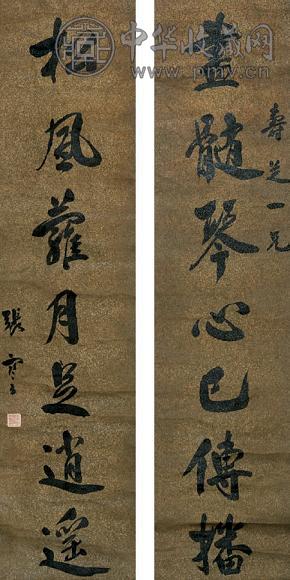 中华收藏网
www.pmv.cn
畫髓琴心已傳播
壽芝一兄
柏風蘿月足逍遥
張